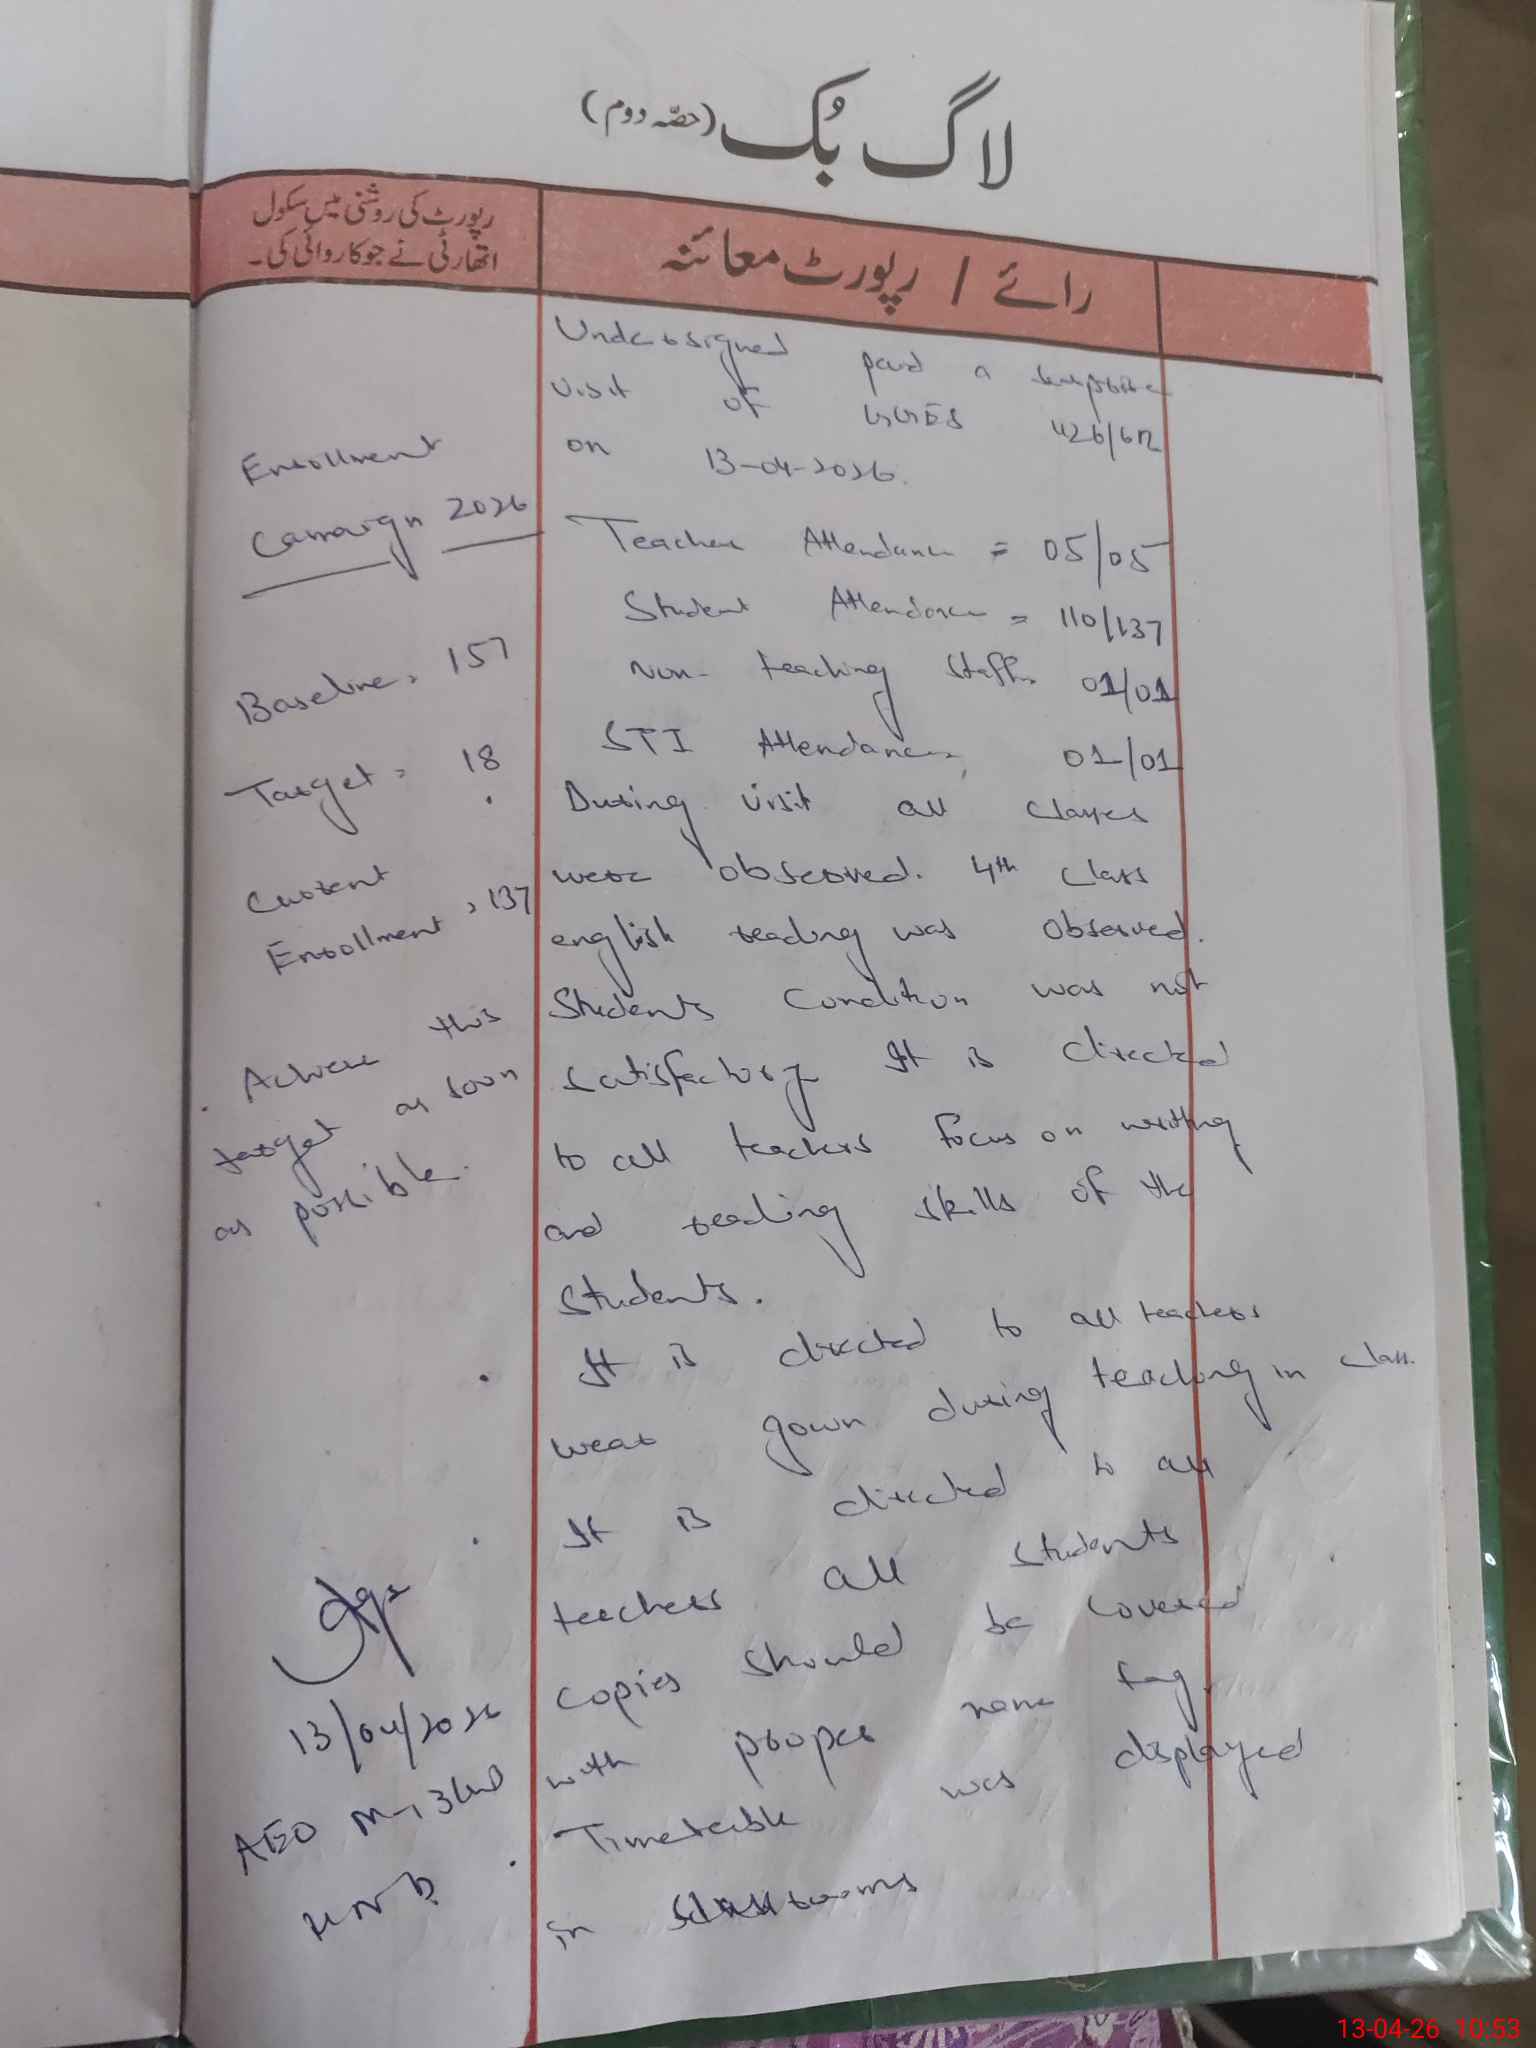 لاگ بُک (حصّہ دوم)
رپورٹ کی روشنی میں سکول
اتھارٹی نے جو کاروائی کی۔
رائے / رپورٹ معائنہ
Undersigned paid a
visit of GGES 426/6R
on 13-04-2026.
Teacher Attendance = 05/05
Student Attendance = 110/137
Non-teaching Staff = 01/01
STI Attendance 01/01
During visit all classes
were observed. 4th class
english reading was observed.
Students Condition was not
satisfactory It is directed
to all teachers focus on writing
and reading skills of the
students.
. It is directed to all teachers
wear gown during teaching in class.
. It is directed to all
teachers all students
copies should be covered
with proper name tag.
. Timetable was displayed
in classrooms
Enrollment
Campaign 2026
Baseline = 157
Target = 18
Current
Enrollment = 137
. Achieve this
target as soon
as possible.
13/04/2026
AEO
13-04-26 10:53